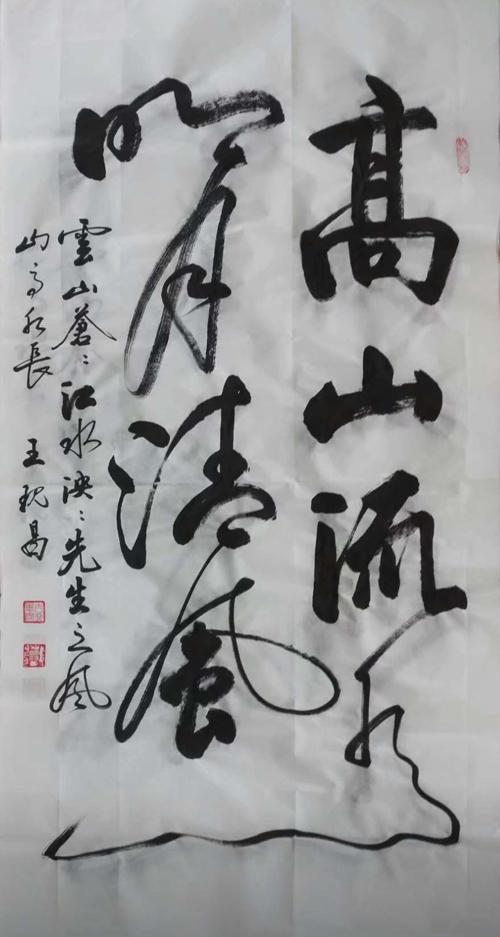 高山流水
明月清風
雲山蒼〻江水泱〻先生之風
山高水長 王昌